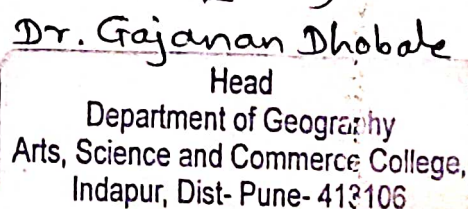 Dr. Gajanan Dhobale
Head
Department of Geography
Arts, Science and Commerce College,
Indapur, Dist- Pune- 413106